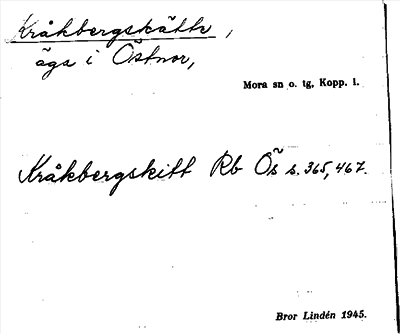 Kråkbergskätte,
äga i Östnor,
Mora sn o. tg, Kopp. l.
Kråkbergskitt Rb Ös s. 365, 467.
Bror Lindén 1945.